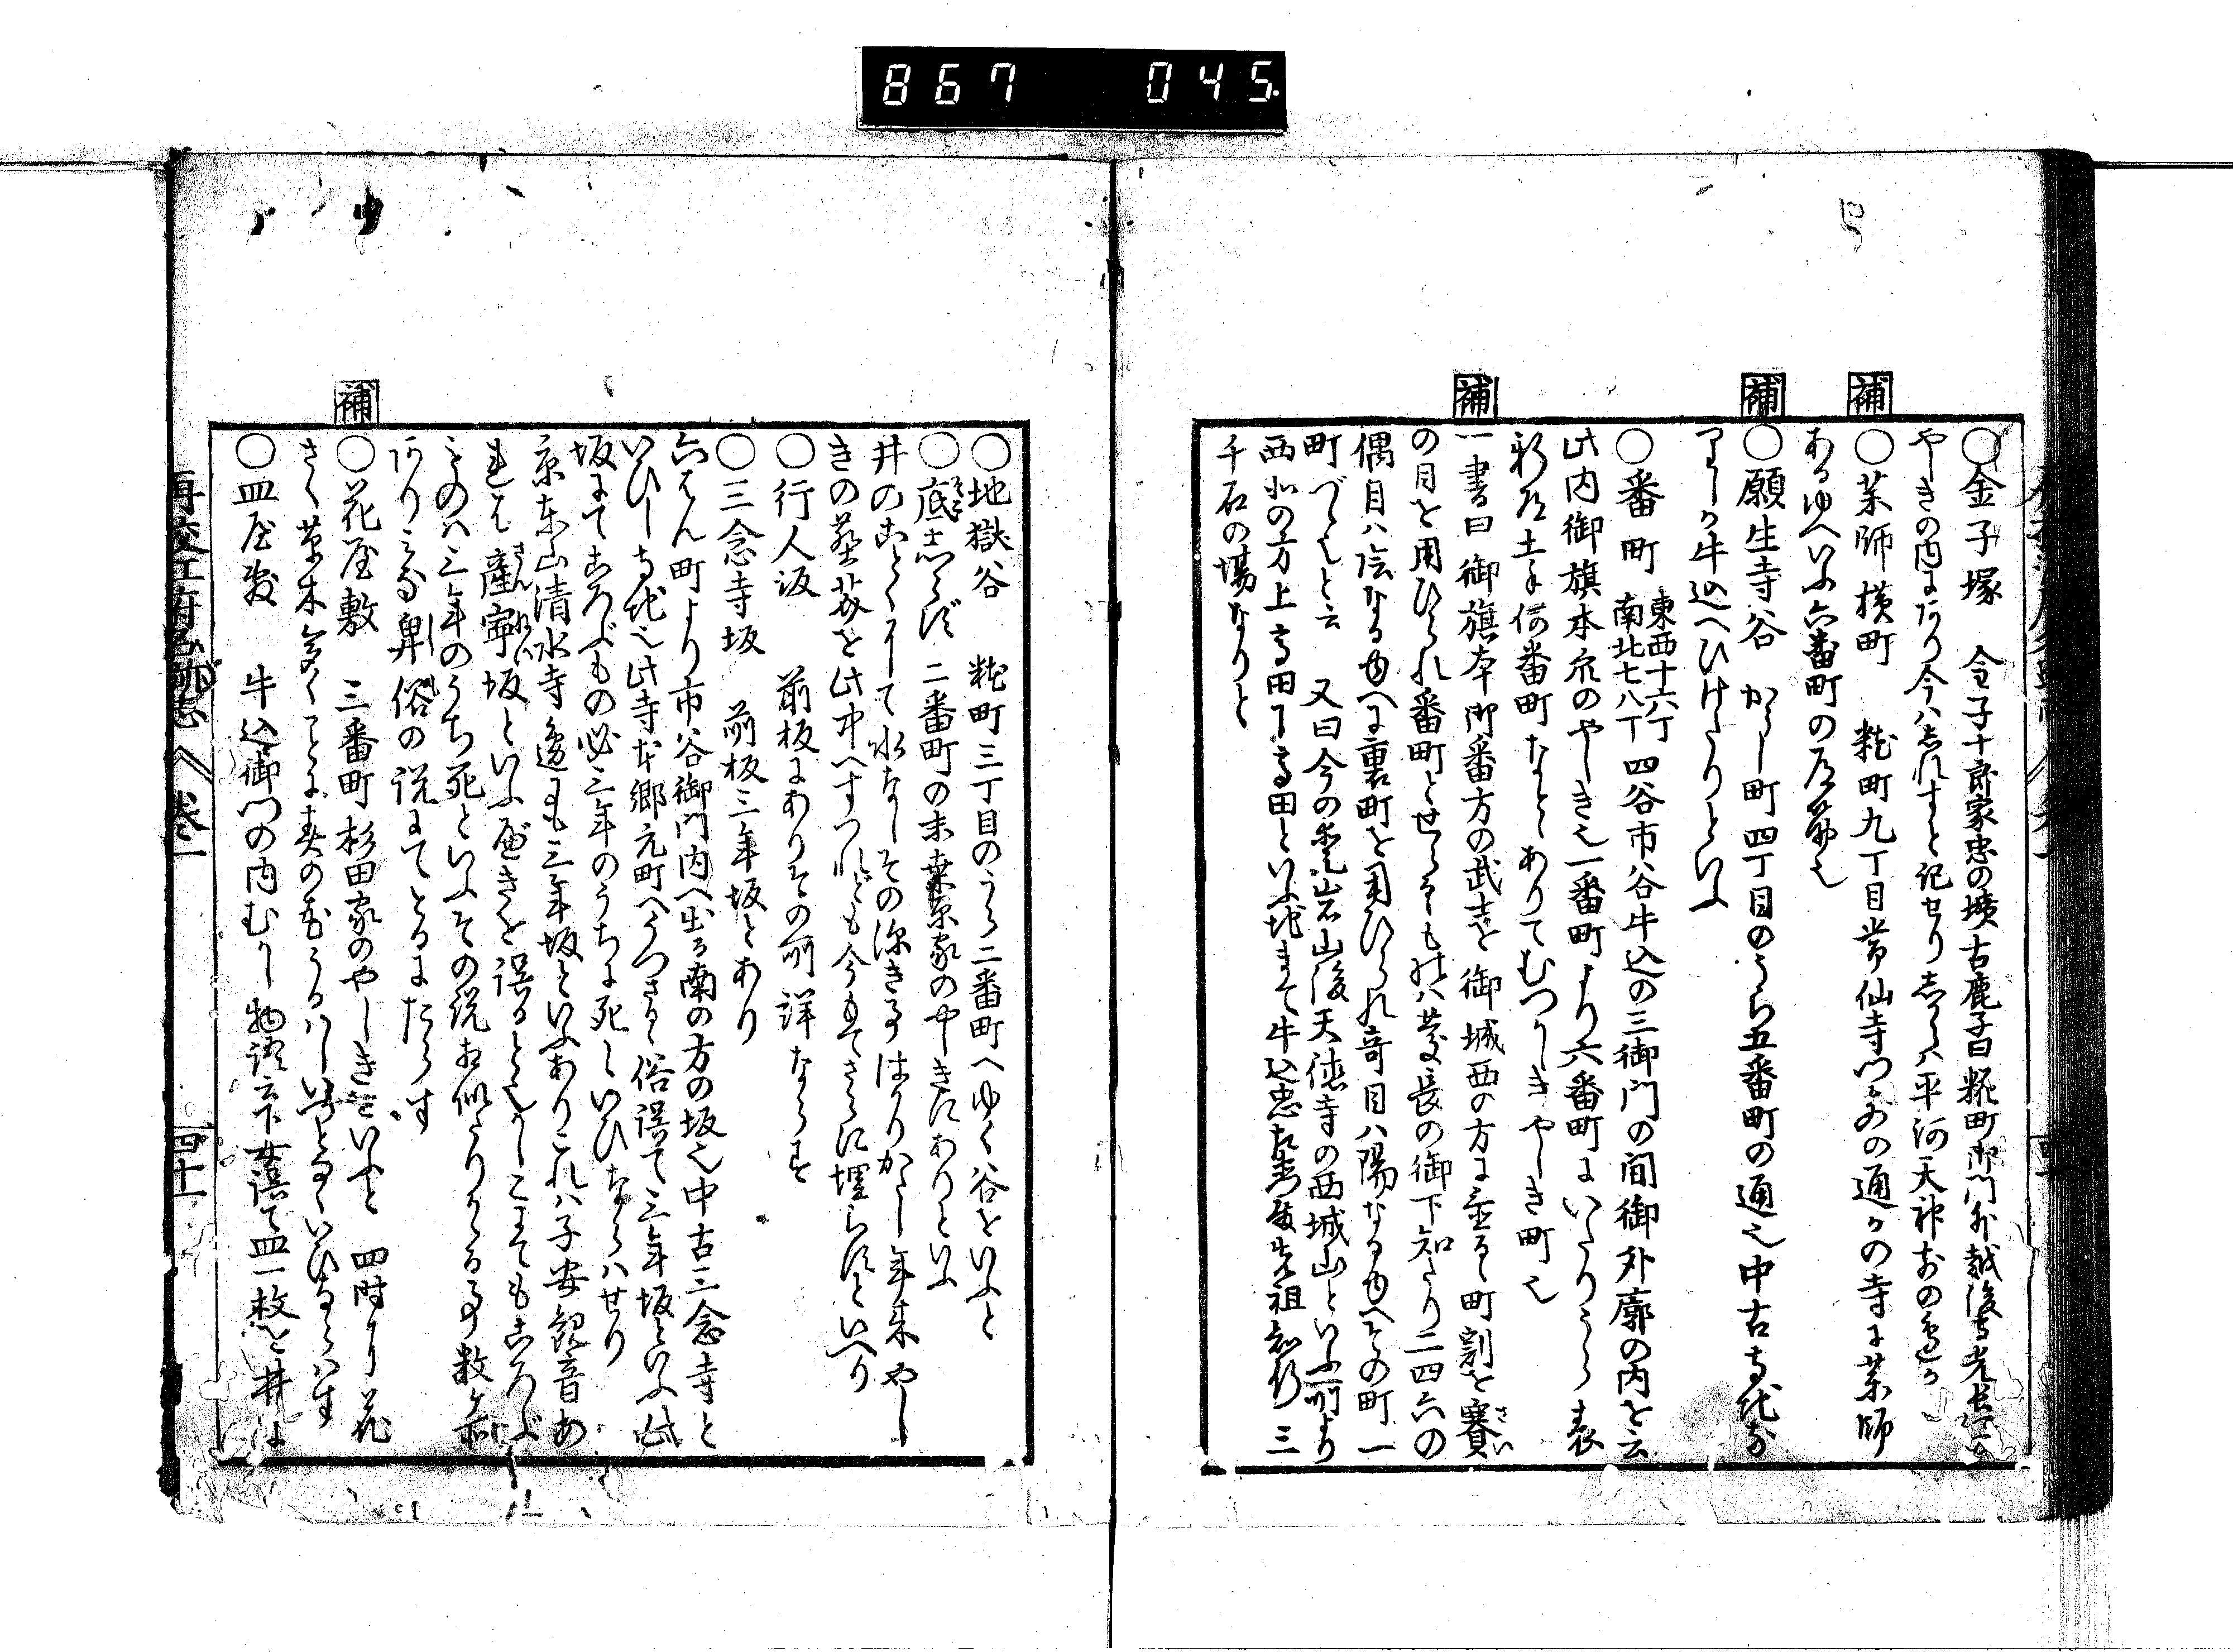 867 045.
○金子塚 金子十郎家忠の墳古鹿子曰糀町御門外越後守光長
やしきの内にあり今ハしれすと記せり しらハ平河天神前の
補
○薬師横町 糀町九丁目常仙寺門前の通りの寺に薬師
あるゆへいふ六番町の
補
○願生寺谷 かうし町四丁目のうら五番町の通也中古寺地
ありしか牛込へひけたりといふ
○番町 東西十六丁 南北七八丁 四谷市谷牛込の三御門の間御外廓の内を云
此内御旗本衆のやしき也一番町より六番町にいたりうら表
新道土手何番町なとゝありてむつかしきやしき町也
補
一書曰 御旗本御番方の武士を 御城西の方に置るゝ町割を賽さい
の目を用ひられ番町とせらるゝも 慶長の御下知なり二四六の
偶目ハ陰なるゆへに裏町を用ひられ奇目ハ陽なるゆへその町一
町づゝと云 又曰今の愛宕山後天徳寺の西城山といふ所より
西北の方上高田下高田といふ地まて牛込忠左衛門先祖知行三
千石の場なりと
○地獄谷 糀町三丁目のうら二番町へゆく谷をいふと
○底そこしらず 二番町の末桑原家のやしきにありといふ
井のことくにして水なしその深き事はかりかたし年来やし
きの塵芥を此中へすつれども今もてさらに埋らすといへり
○行人坂 前板にありその所詳ならす
○三念寺坂 前板三年坂とあり
六はん町より市谷御門内へ出る南の方の坂也中古三念寺と
いひし寺地也此寺本郷元町へうつさる 俗誤て三年坂といふ此
坂にてころぶもの必三年のうちに死しいひならハせり
京東山清水寺邊にも三年坂といふありこれハ子安観音あ
れは産寧さんねい坂といふべきを誤るとそかしこにてもころぶ
ものハ三年のうち死といふその説相似たりかゝる事数ヶ所
ありみな卑俗の説にてとるにたらす
補
○花屋敷 三番町杉田家のやしきをいふと 四時に花
さく草木多くことに春の花うるハしいつとなくいひならハす
○皿屋敷 牛込御門の内むかし物語云下女誤て皿一枚を井に
再校江府名跡志 巻一 四十一